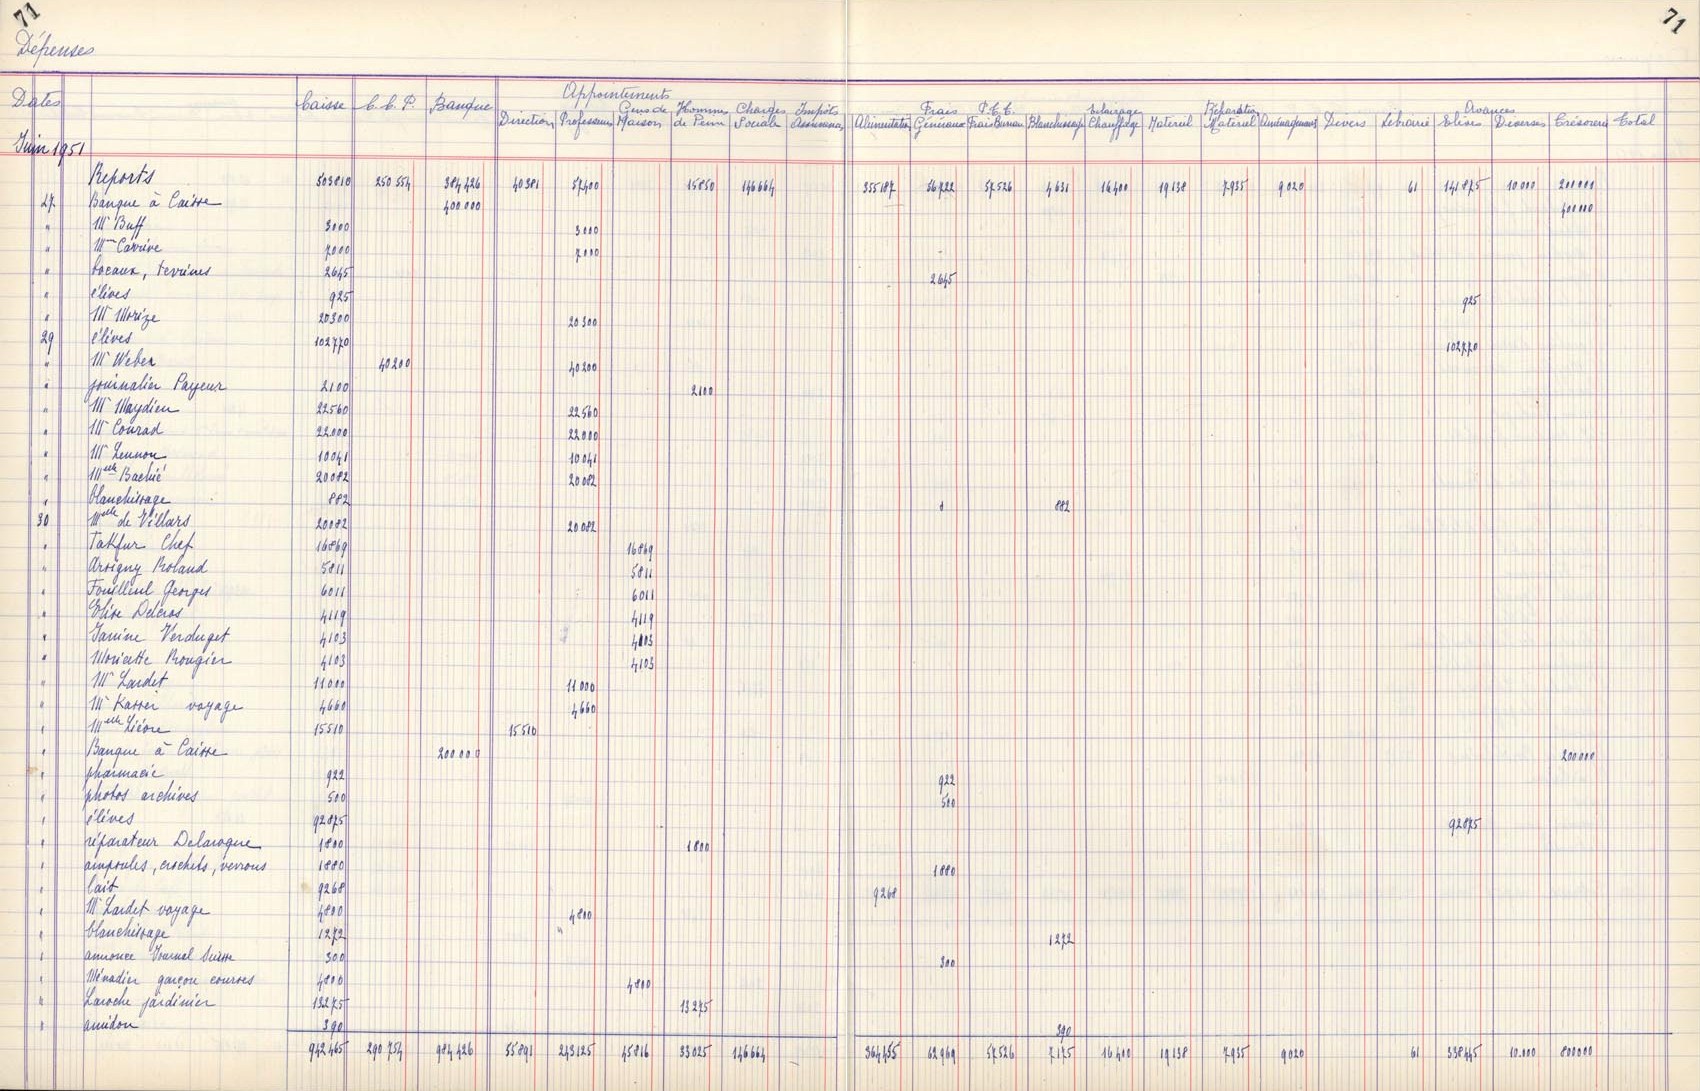 71 71
Dépenses
Dates Caisse C.C.P. Banque Appointements Direction Professeurs Gens de Maison Hommes de Peine Charges Sociale Impôts Assurances Alimentation Frais Généraux P.T.T. Frais Bureau Blanchissage Eclairage Chauffage Matériel Réparation Matériel Aménagement Divers Librairie Avances Elèves Diverses Trésorerie Total
Juin 1951
Reports 503810 250554 384426 40381 57400 15850 146664 355187 56722 57526 4631 16400 19138 7935 9020 61 141875 10.000 200000
27 Banque à Caisse 400.000 400000
" Mr Buff 3000 3000
" Mme Carrive 7000 7000
" bocaux, terrines 2645 2645
" élèves 925 925
" Mr Morize 20300 20300
29 élèves 102770 102770
" Mr Weber 40200 40200
" journalier Payeur 2100 2100
" Mr Maydieu 22560 22560
" Mr Conrad 22000 22000
" Mr Lennon 10041 10041
" Melle Bachié 20082 20082
" blanchissage 882 882
30 Melle de Villars 20082 20082
" Takfur Chef 16869 16869
" Arsigny Roland 5811 5811
" Fouilleul Georges 6011 6011
" Elise Delcros 4119 4119
" Janine Verduget 4103 4103
" Moricette Rougier 4103 4103
" Mr Lardet 11000 11000
" Mr Karrer voyage 4660 4660
" Melle Lièvre 15510 15510
" Banque à Caisse 200000 200000
" pharmacie 922 922
" photos archives 500 500
" élèves 92875 92875
" réparateur Delarogue 1800 1800
" ampoules, crochets, verrous 1880 1880
" lait 9268 9268
" Mr Lardet voyage 4800 4800
" blanchissage 1272 1272
" annonce Journal Suisse 300 300
" Ménadier garçon courses 4800 4800
" Laroche jardinier 13275 13275
" amidon 390 390
942465 290754 984426 55891 243125 45816 33025 146664 364455 62969 57526 7175 16400 19138 7935 9020 61 338445 10.000 800000